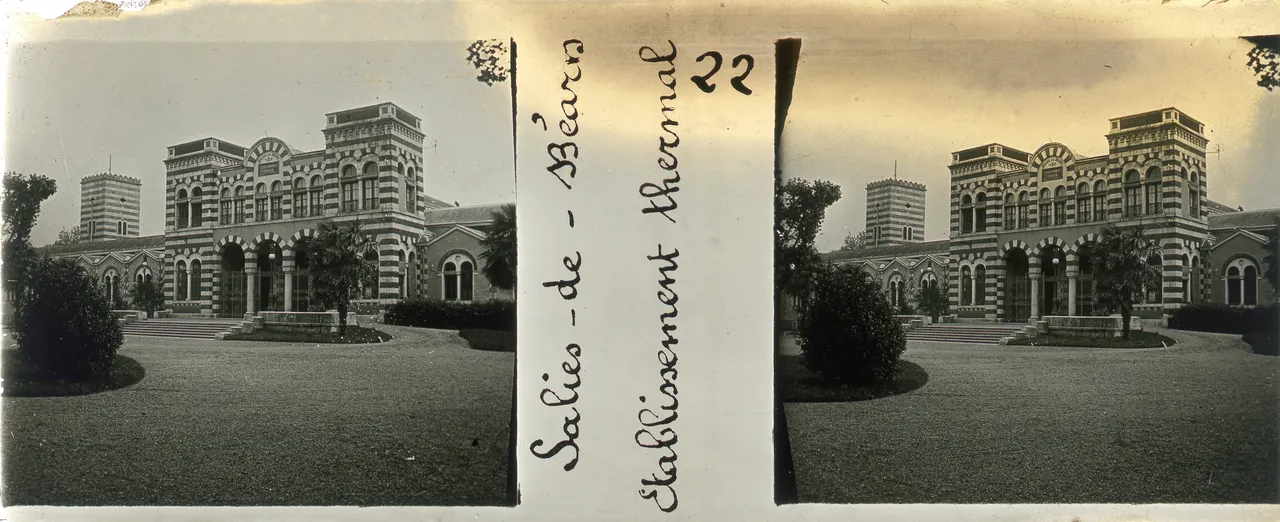 Salies-de-Béarn
Etablissement thermal
22